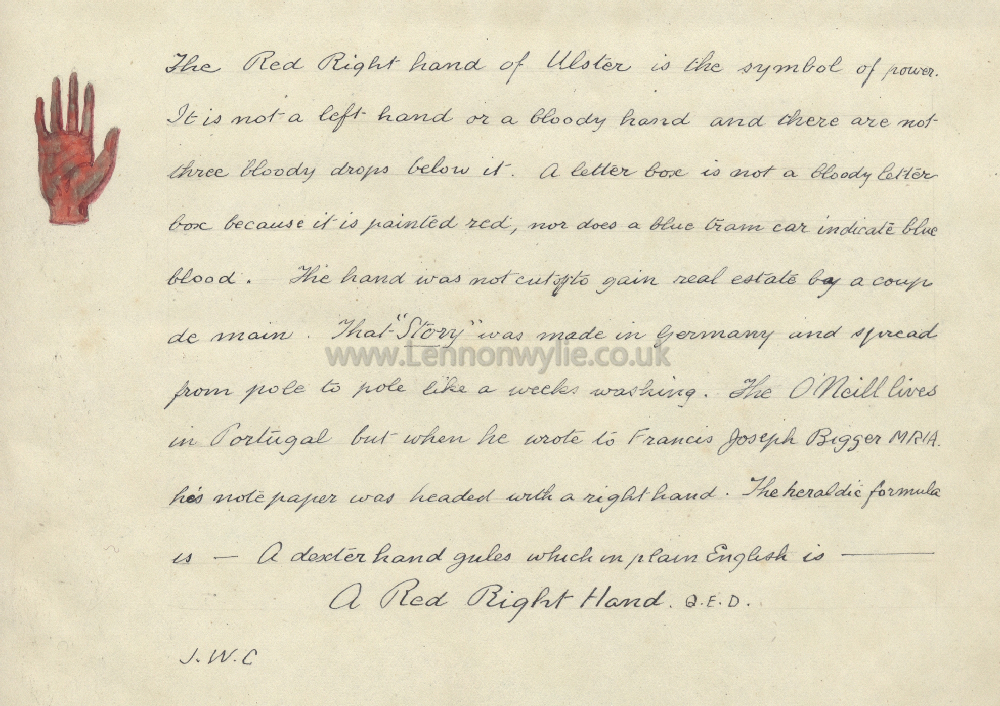 The Red Right hand of Ulster is the symbol of power.
It is not a left hand or a bloody hand and there are not
three bloody drops below it. A letter box is not a bloody letter
box because it is painted red, nor does a blue tram car indicate blue
blood. The hand was not cut off to gain real estate by a coup
de main. That "Story" was made in Germany and spread
www.Lennonwylie.co.uk
from pole to pole like a weeks washing. The O'Neill lives
in Portugal but when he wrote to Francis Joseph Bigger MRIA.
his note paper was headed with a right hand. The heraldic formula
is — A dexter hand gules which in plain English is —
A Red Right Hand. Q.E.D.
J.W.C